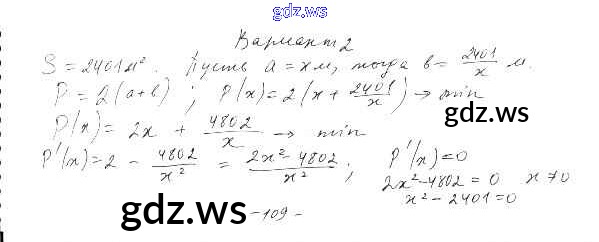 gdz.ws
Вариант 2
S = 2401 м². Пусть a = x м, тогда b = 2401/x м.
P = 2(a+b); P(x) = 2(x + 2401/x) → min
P(x) = 2x + 4802/x → min
P'(x) = 2 - 4802/x² = 2x² - 4802/x²; P'(x) = 0
2x² - 4802 = 0 x ≠ 0
x² - 2401 = 0
gdz.ws
- 109 -
gdz.ws